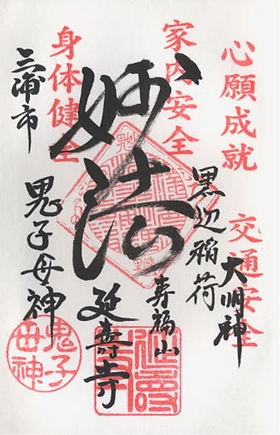 心願成就
交通安全
家内安全
身体健全
大明神
黒辺稲荷
寿福山
妙法
延寿寺
三浦市
鬼子母神
鬼子
母神